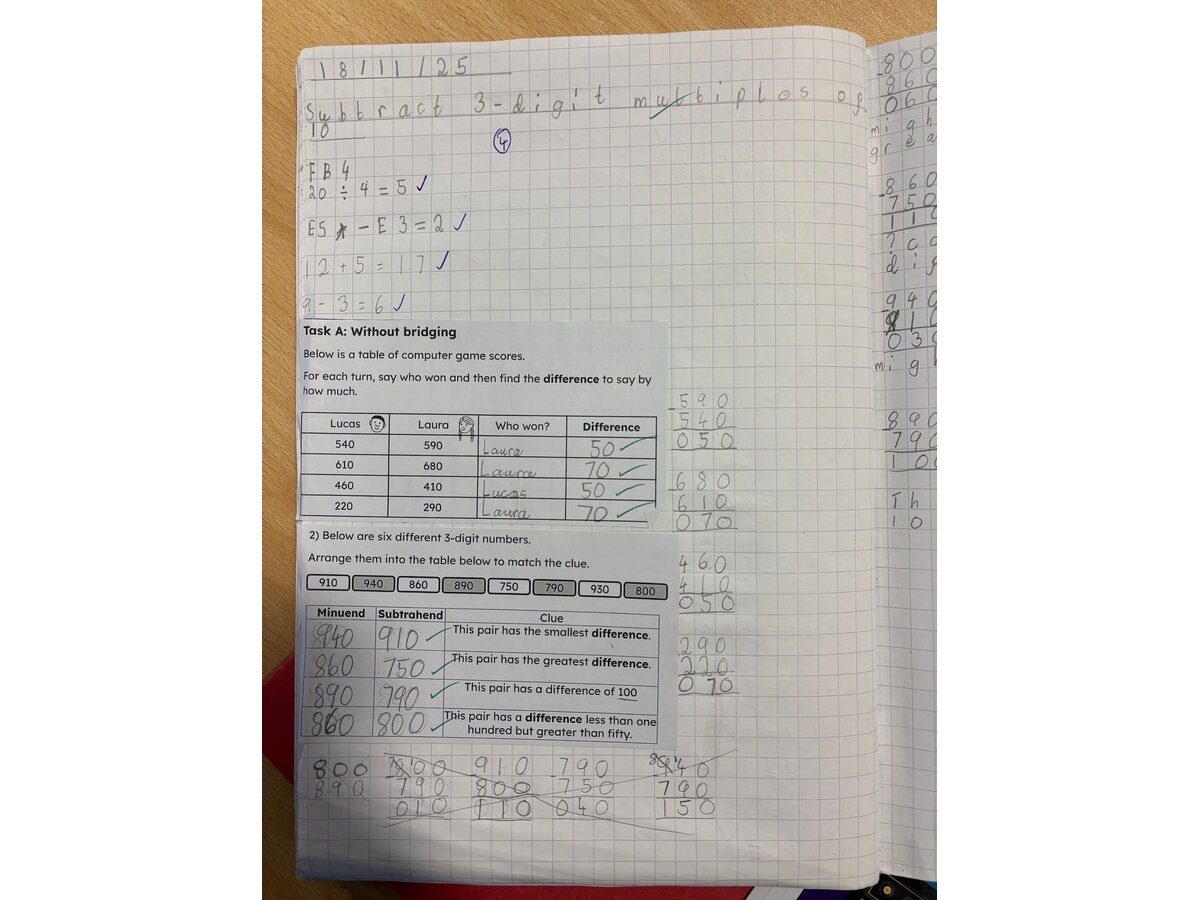 18/11/25
Subtract 3-digit multiples of
10
4
FB4
20 ÷ 4 = 5 ✓
E5 - E3 = 2 ✓
12 + 5 = 17 ✓
9 - 3 = 6 ✓
Task A: Without bridging
Below is a table of computer game scores.
For each turn, say who won and then find the difference to say by
how much.
Lucas Laura Who won? Difference
540 590 Laura 50 ✓
610 680 Laura 70 ✓
460 410 Lucas 50 ✓
220 290 Laura 70 ✓
-590
540
050
-680
610
070
460
410
050
290
220
070
2) Below are six different 3-digit numbers.
Arrange them into the table below to match the clue.
910 940 860 890 750 790 930 800
Minuend Subtrahend Clue
940 910 ✓ This pair has the smallest difference.
860 750 ✓ This pair has the greatest difference.
890 790 ✓ This pair has a difference of 100
860 800 ✓ This pair has a difference less than one
hundred but greater than fifty.
800
890
-800
790
010
-910
800
110
-790
750
040
-940
790
150
-800
860
060
migh
grea
-860
750
110
dig
940
910
030
migh
890
790
100
Th
10